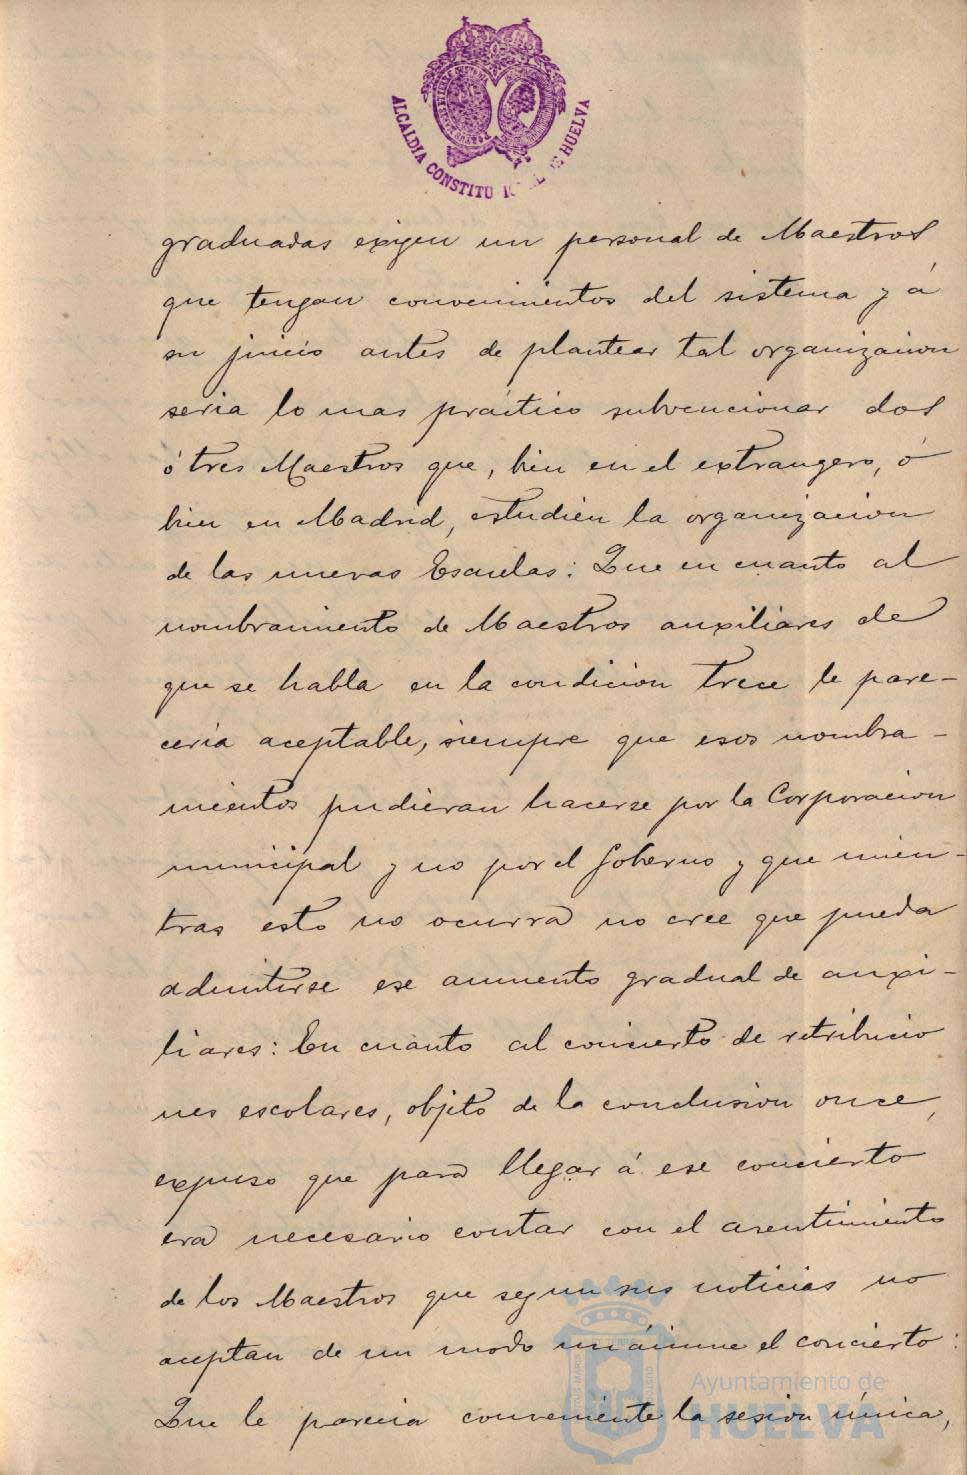 ALCALDIA CONSTITU L DE HUELVA
graduadas exigen un personal de Maestros
que tengan convenimientos del sistema y á
su juicio antes de plantear tal organizacion
seria lo mas práctico subvencionar dos
ó tres Maestros que, bien en el extrangero, ó
bien en Madrid, estudien la organizacion
de las nuevas Escuelas: Que en cuanto al
nombramiento de Maestros auxiliares de
que se habla en la condicion trece le pare-
ceria aceptable, siempre que esos nombra-
mientos pudieran hacerse por la Corporacion
municipal y no por el Gobierno y que mien-
tras esto no ocurra no cree que pueda
admitirse ese aumento gradual de auxi-
liares: En cuanto al concierto de retribucio
nes escolares, objeto de la conclusion once,
expuso que para llegar á ese concierto
era necesario contar con el asentimiento
de los Maestros que segun sus noticias no
aceptan de un modo unánime el concierto:
Que le parecia conveniente la sesion única,
Ayuntamiento de
HUELVA